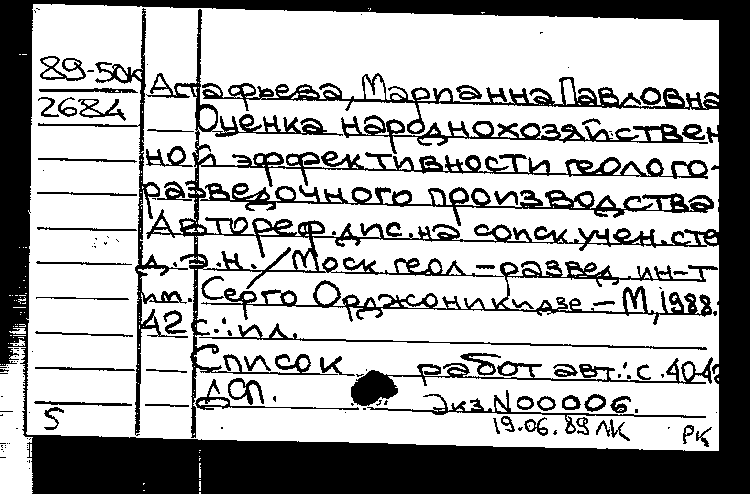 89-50к
2684
Астафьева, Марианна Павловна
Оценка народнохозяйствен
ной эффективности геолого-
разведочного производства
Автореф. дис. на соиск. учен. сте
д.э.н. / Моск. геол.-развед. ин-т
им. Серго Орджоникидзе. – М., 1988.
42 с.: ил.
Список работ авт.: с. 40-42
ДСП. Экз. N00006.
5 19.06.89 ЛК РК